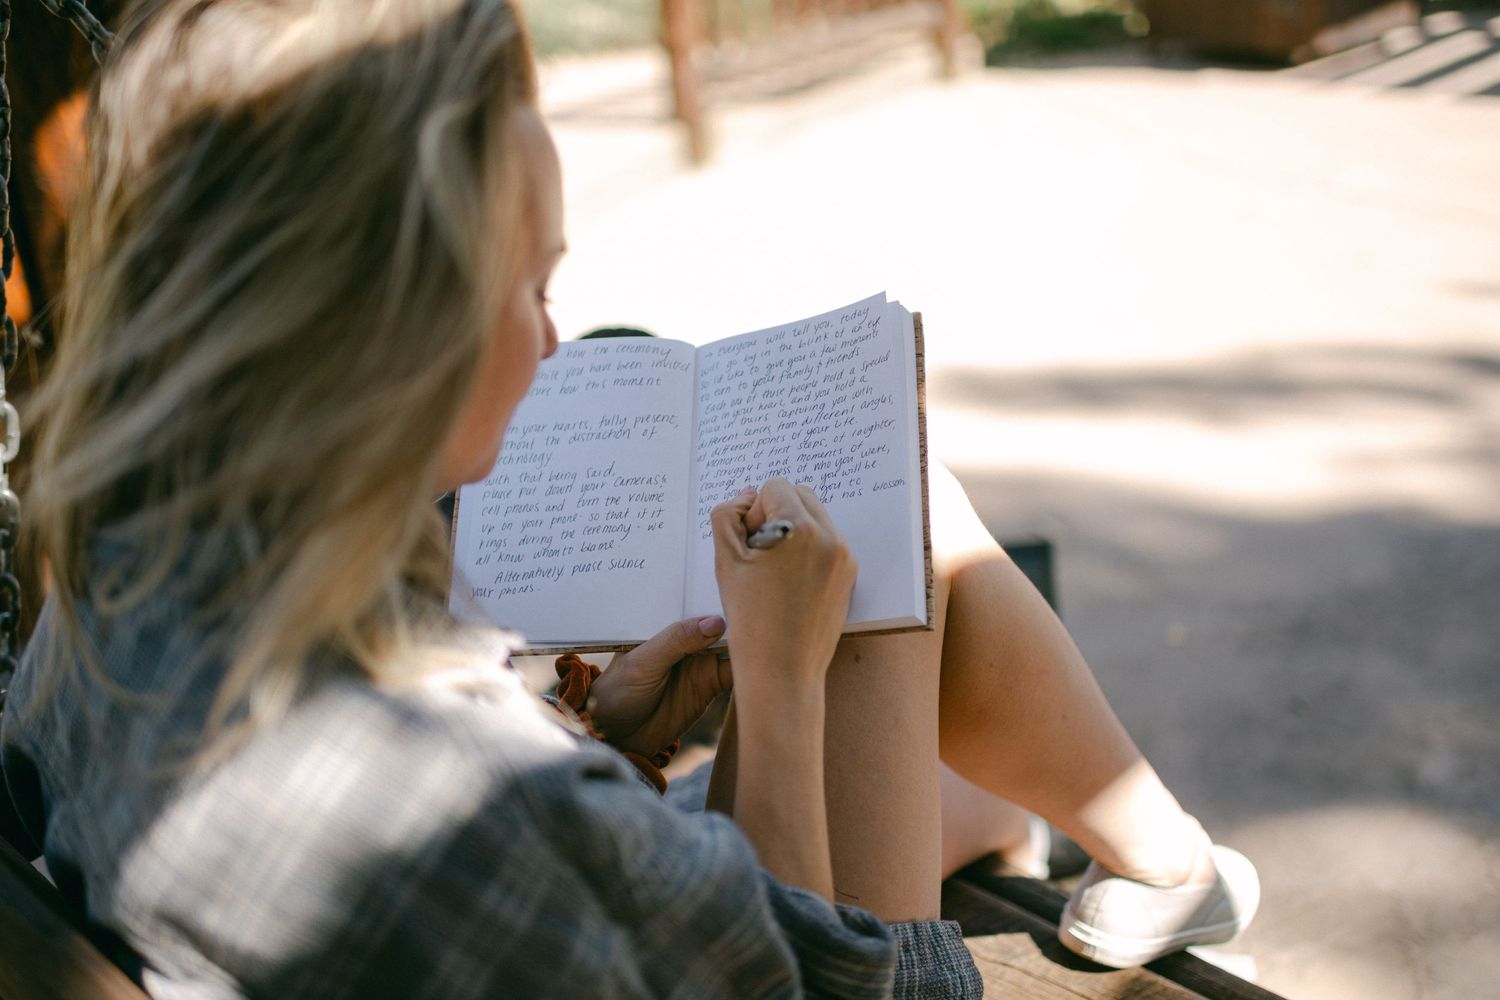 how the ceremony
while you have been invited
how this moment
your hearts, fully present,
the distraction of
technology.
with that being said,
please put down your cameras &
cell phones and turn the volume
up on your phone - so that if it
rings during the ceremony - we
all know whom to blame.
Alternatively, please silence
your phones.
→ Everyone will tell you, today
will go by in the blink of an eye
so I'd like to give you a few moments
to turn to your family & friends.
Each one of these people hold a special
place in your heart and you hold a
place in theirs. Capturing you with
different lenses from different angles,
at different points of your life.
Memories of first steps, of laughter,
of struggle and moments of
courage. A witness of who you were,
who you who you will be
you to
has blossom